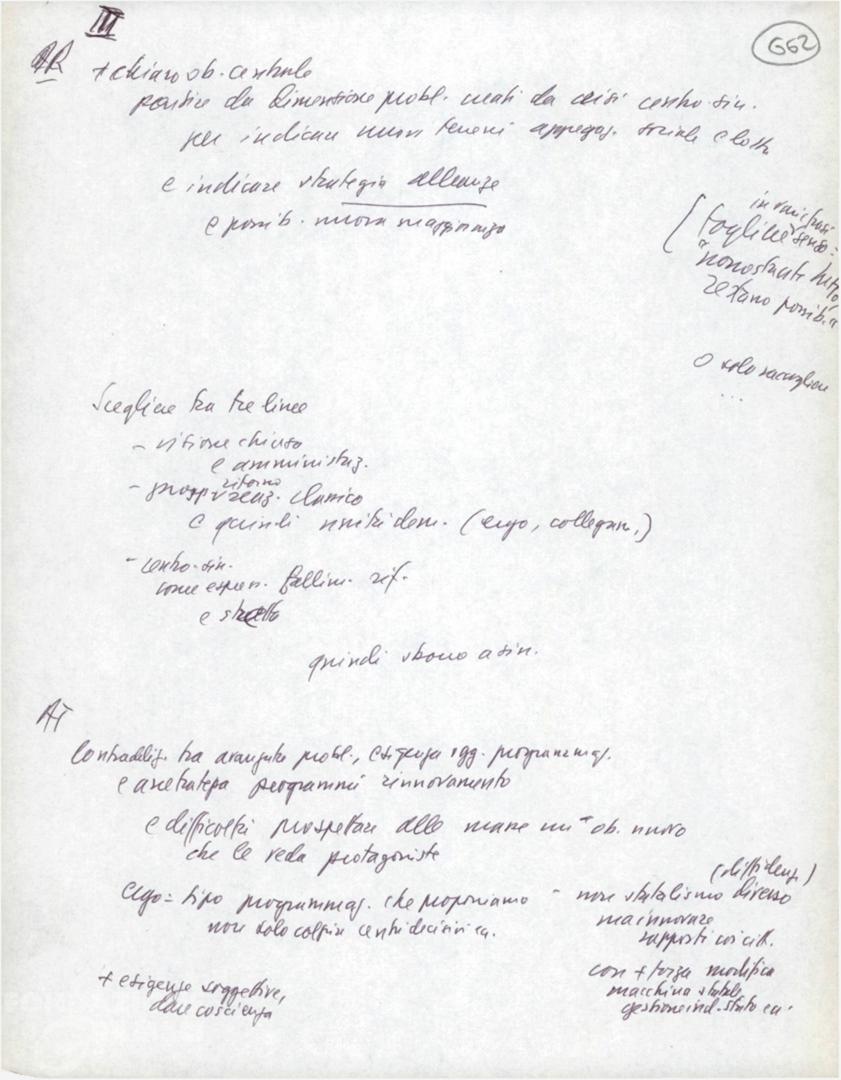 III
G62
AR
+ chiaro ob. centrale
partire da dimensione probl. creati da crisi centro-sin.
per indicare nuovi terreni appegg. sociale e lotta
e indicare strategia alleanze
e possib. nuova maggioranza
togliere senso:
"nonostante tutto,
restano possib."
O solo raccogliere
...
Scegliere tra tre linee
- visione chiusa
e amministraz.
ritorno
- classico
e quindi unità dem. (ergo, collegam.)
- centro-sin.
come espress. fallim. rif.
e
quindi sbocco a sin.
AT
Contraddiz. tra avanzate probl., esigenza ogg. programmaz.
e arretratezza programmi rinnovamento
e difficoltà prospettare alle masse un ob. nuovo
che le veda protagoniste
(diffidenza)
ergo = tipo programmaz. che proponiamo - non statalismo diverso
non solo colpire centri decisivi ec.
ma innovare
rapporti coi citt.
+ esigenze soggettive,
dare coscienza
con + forza modifica
macchina statale
gestione ind. stato ec.